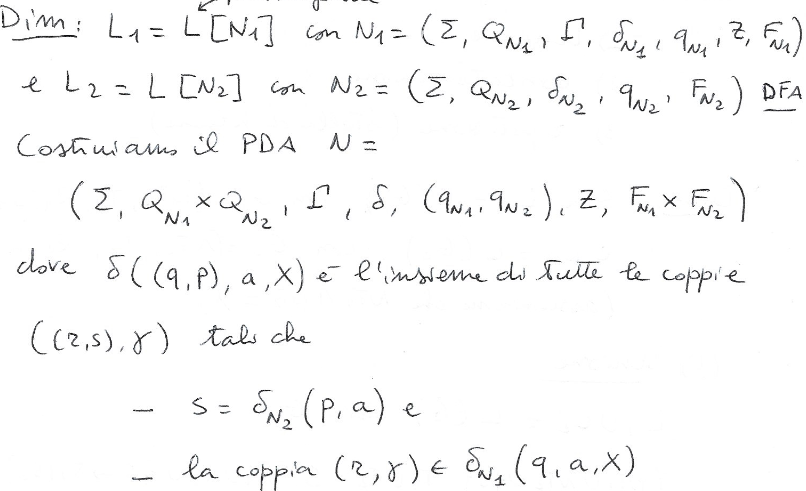 Dim: L₁ = L[N₁] con N₁ = (Σ, Q_N₁, Γ, δ_N₁, q_N₁, Z, F_N₁)
e L₂ = L[N₂] con N₂ = (Σ, Q_N₂, δ_N₂, q_N₂, F_N₂) DFA
Costruiamo il PDA N =
(Σ, Q_N₁ × Q_N₂, Γ, δ, (q_N₁, q_N₂), Z, F_N₁ × F_N₂)
dove δ((q,p), a, X) è l'insieme di tutte le coppie
((r,s), γ) tali che
– s = δ_N₂(p, a) e
– la coppia (r, γ) ∈ δ_N₁(q, a, X)